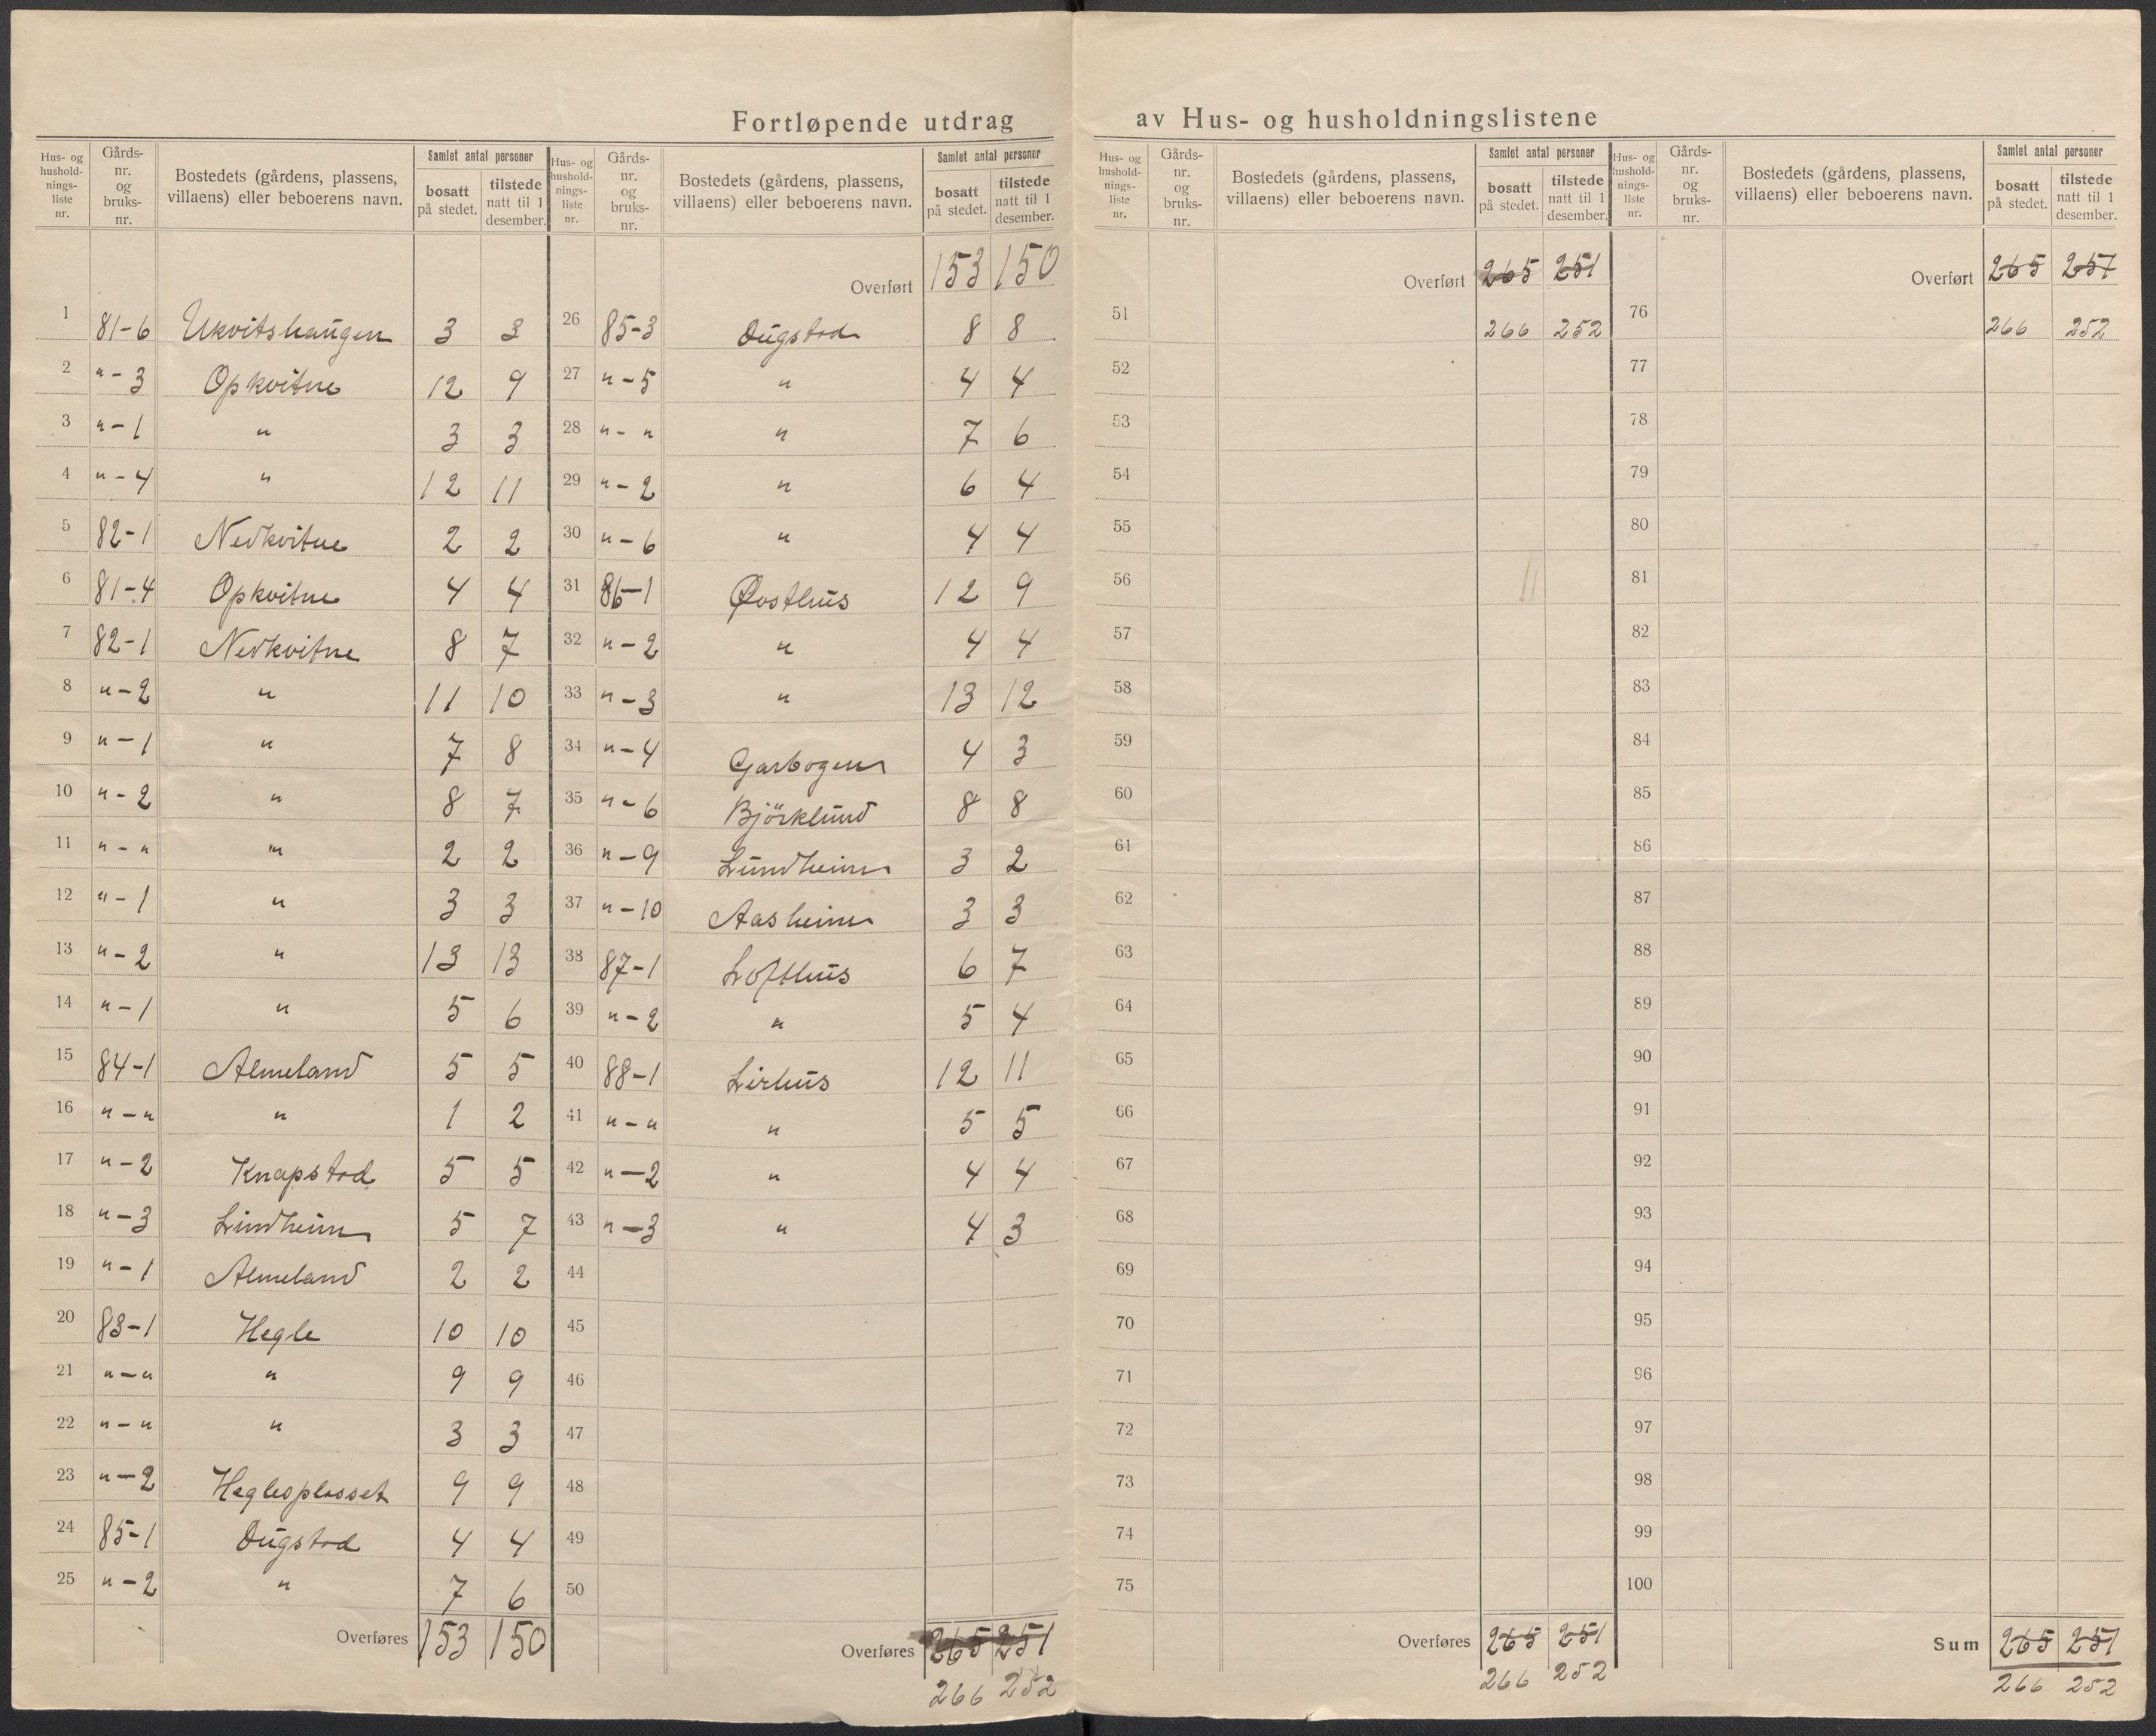 Fortløpende utdrag av Hus- og husholdningslistene
Hus- og hushold-nings-liste nr. | Gårds-nr. og bruks-nr. | Bostedets (gårdens, plassens, villaens) eller beboerens navn. | Samlet antal personer | bosatt på stedet. | tilstede natt til 1 desember.
1 81-6 Ukvitshaugen 3 3
2 "-3 Opkvitne 12 9
3 "-1 " 3 3
4 "-4 " 12 11
5 82-1 Nedkvitne 2 2
6 81-4 Opkvitne 4 4
7 82-1 Nedkvitne 8 7
8 "-2 " 11 10
9 "-1 " 7 8
10 "-2 " 8 7
11 "-" " 2 2
12 "-1 " 3 3
13 "-2 " 13 13
14 "-1 " 5 6
15 84-1 Almeland 5 5
16 "-" " 1 2
17 "-2 Knapstad 5 5
18 "-3 Lindheim 5 7
19 "-1 Almeland 2 2
20 83-1 Hegle 10 10
21 "-" " 9 9
22 "-" " 3 3
23 "-2 Heglesplasset 9 9
24 85-1 Dugstad 4 4
25 "-2 " 7 6
Overføres 153 150
Hus- og hushold-nings-liste nr. | Gårds-nr. og bruks-nr. | Bostedets (gårdens, plassens, villaens) eller beboerens navn. | Samlet antal personer | bosatt på stedet. | tilstede natt til 1 desember.
Overført 153 150
26 85-3 Dugstad 8 8
27 "-5 " 4 4
28 "-" " 7 6
29 "-2 " 6 4
30 "-6 " 4 4
31 86-1 Øvsthus 12 9
32 "-2 " 4 4
33 "-3 " 13 12
34 "-4 Garbogen 4 3
35 "-6 Björklund 8 8
36 "-9 Lundheim 3 2
37 "-10 Aasheim 3 3
38 87-1 Lofthus 6 7
39 "-2 " 5 4
40 88-1 Lirhus 12 11
41 "-" " 5 5
42 "-2 " 4 4
43 "-3 " 4 3
44
45
46
47
48
49
50
Overføres 265 251
266 252
Hus- og hushold-nings-liste nr. | Gårds-nr. og bruks-nr. | Bostedets (gårdens, plassens, villaens) eller beboerens navn. | Samlet antal personer | bosatt på stedet. | tilstede natt til 1 desember.
Overført 265 251
51 266 252
52
53
54
55
56
57
58
59
60
61
62
63
64
65
66
67
68
69
70
71
72
73
74
75
Overføres 265 251
266 252
Hus- og hushold-nings-liste nr. | Gårds-nr. og bruks-nr. | Bostedets (gårdens, plassens, villaens) eller beboerens navn. | Samlet antal personer | bosatt på stedet. | tilstede natt til 1 desember.
Overført 265 251
76 266 252
77
78
79
80
81
82
83
84
85
86
87
88
89
90
91
92
93
94
95
96
97
98
99
100
Sum 265 251
266 252